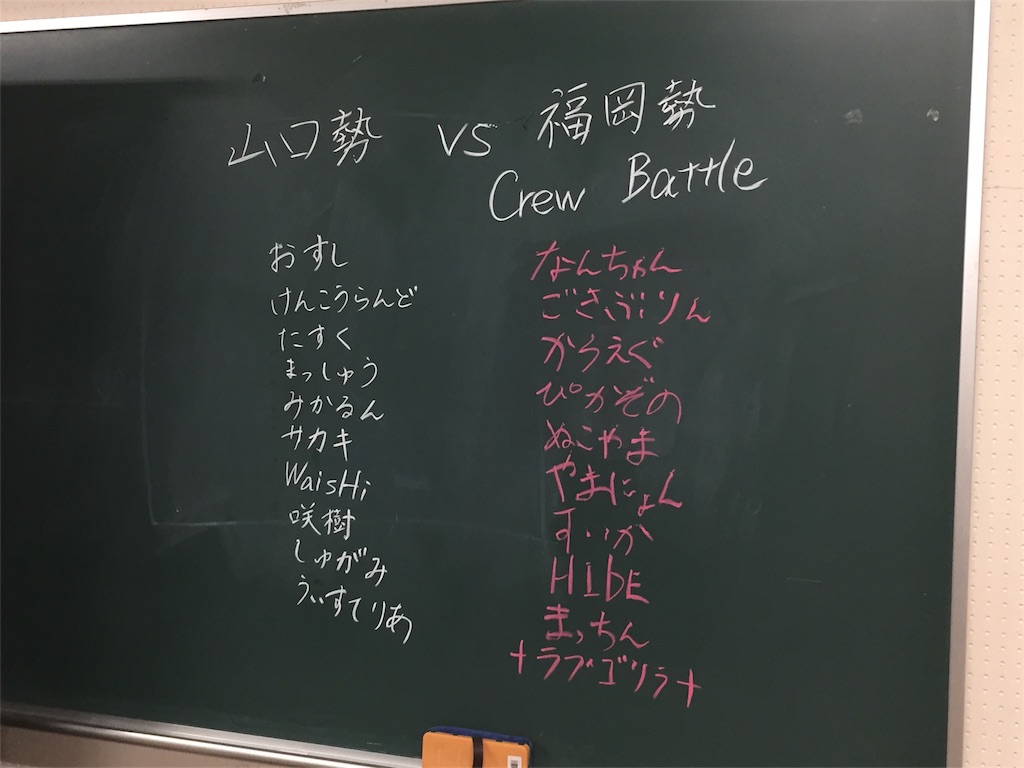 山口勢 vs 福岡勢
Crew Battle
おすし
けんこうらんど
たすく
まっしゅう
みかるん
サカキ
WaisHi
咲樹
しゅがみ
うぃすてりあ
なんちゃん
ごさぶりん
からえぐ
ぴかぞの
ぬこやま
やまにょん
すいか
HIDE
まっちん
+ラブ・ゴリラ+